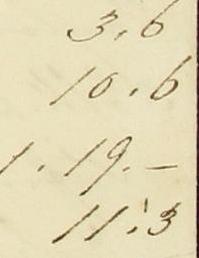 3.6
10.6
1.19.–
11.3